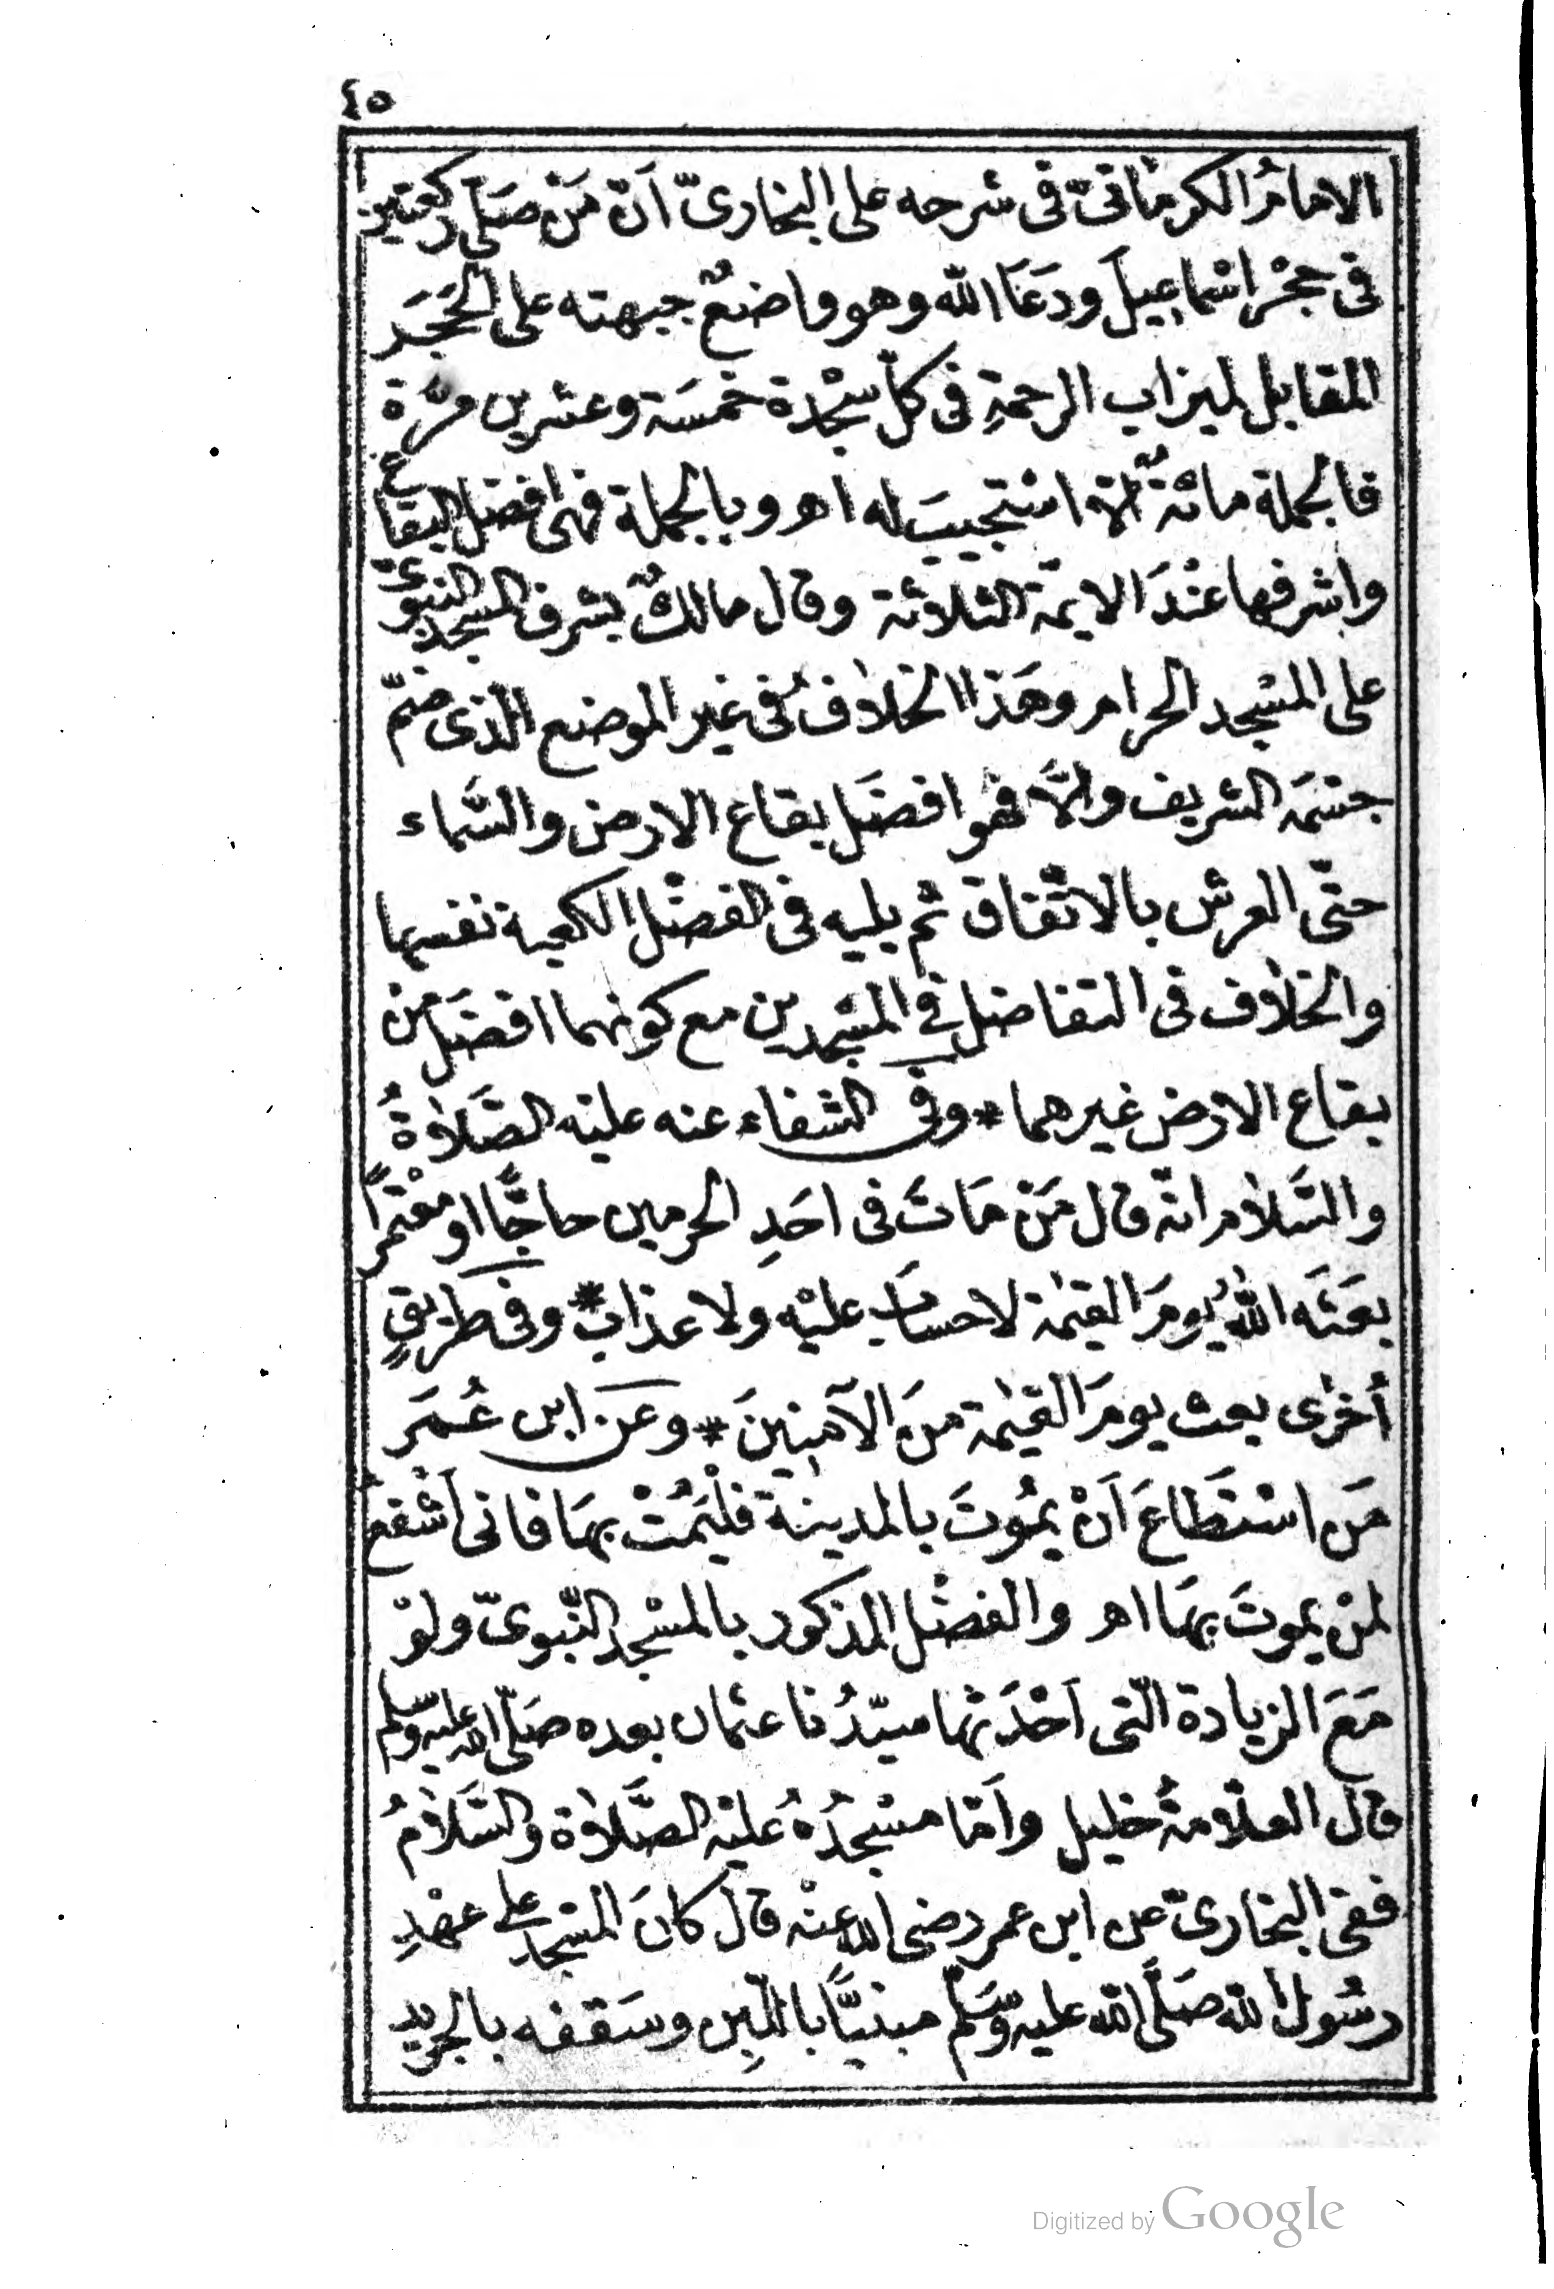 ٤٥
الامامُ الكرمانىّ فى شرحه على البخارىّ اَنّ مَنْ صَلّى ركعتين
فى حِجْر اسْماعِيلَ ودَعَا الله وهو واضعٌ جبهته على الحَجَر
المقابل لميزاب الرحمةِ فى كلّ سَجْدة خمسَة وعشرين مرّة
فالجملة مائةٌ الّا اسْتجيبَ له اهـ وبالجملة فهى افضل البقاع
واشرفها عنْدَ الايمّة الثلاثة وقال مالكٌ بشرف المسجد النبوىّ
على المسْجد الحرام وهَذا الخلافُ فى غير الموضع الّذى ضمّ
جسْمَه الشريف والَّا فهو افضَل بقاع الارض والسَّماء
حتّى العرش بالاتّفاق ثم يليه فى الفضْل الكعبة نفسها
والخلاف فى التفاضل فى المسْجدين مع كونهما افضَل من
بقاع الارض غيرهما * وفى الشفاء عنه عليْه الصَّلاةُ
والسَّلام انّه قال مَنْ مَاتَ فى احَدِ الحرمين حاجًّا او معْتمرًا
بعَثَه اللهُ يومَ القيٰمة لاحسابَ عليْه ولا عذابَ * وفى طريقٍ
أخرٰى بعث يومَ القيٰمة منَ الآمِنِينَ * وعن ابن عُمَر
مَن اسْتطَاعَ اَنْ يمُوتَ بالمدينة فلْيَمُتْ بهَا فانى اَشْفع
لمنْ يموتَ بهَا اهـ والفضْل المذكور بالمسْجد النّبوىّ ولوْ
مَعَ الزيادة الّتى اَحْدَثها سيّدُنا عثمان بعده صَلّى الله عليه وسلّم
قال العلّامةُ خليل واَمّا مسْجدُهُ عليْه الصَّلاة والسَّلامُ
ففى البخارىّ عن ابن عمر رضى الله عنْه قال كانَ المسْجد على عهْدِ
رسُول الله صَلَّى الله عليه وسَلّم مبنيًّا باللّبِن وسَقفه بالجريد
Digitized by Google